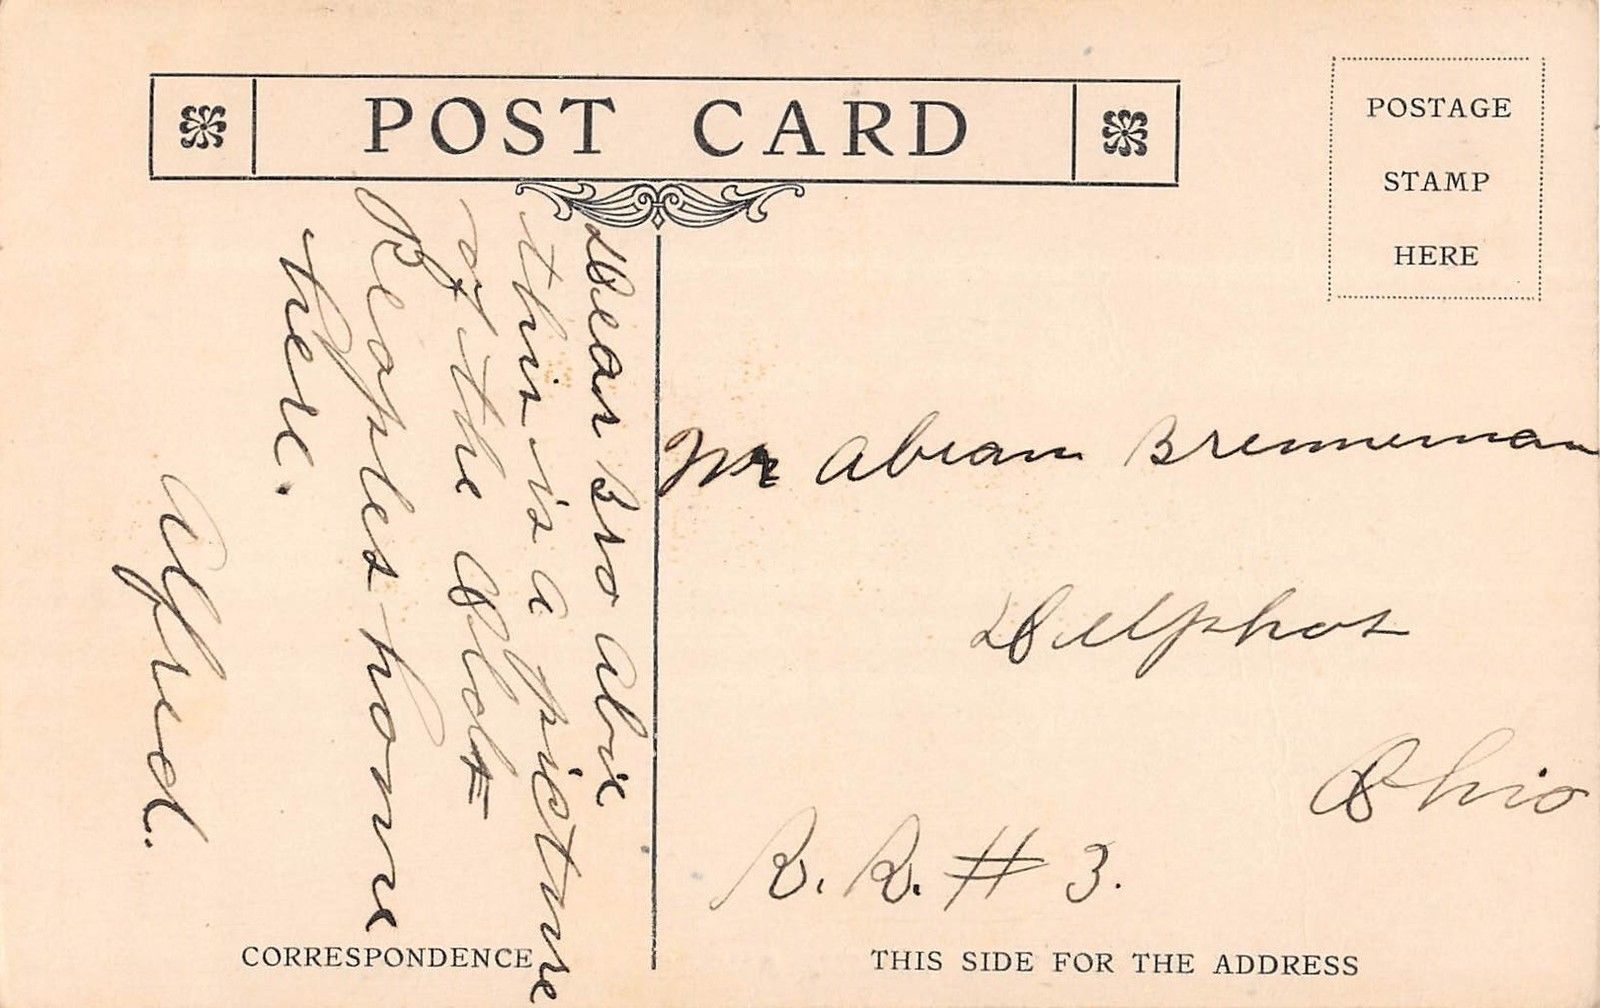 POST CARD
POSTAGE
STAMP
HERE
Dear Bro Abie
this is a picture
of the Old =
Peoples home
here.
Alfred.
Mr Abram Brenneman
Delphos
Ohio
R. R. # 3.
CORRESPONDENCE
THIS SIDE FOR THE ADDRESS